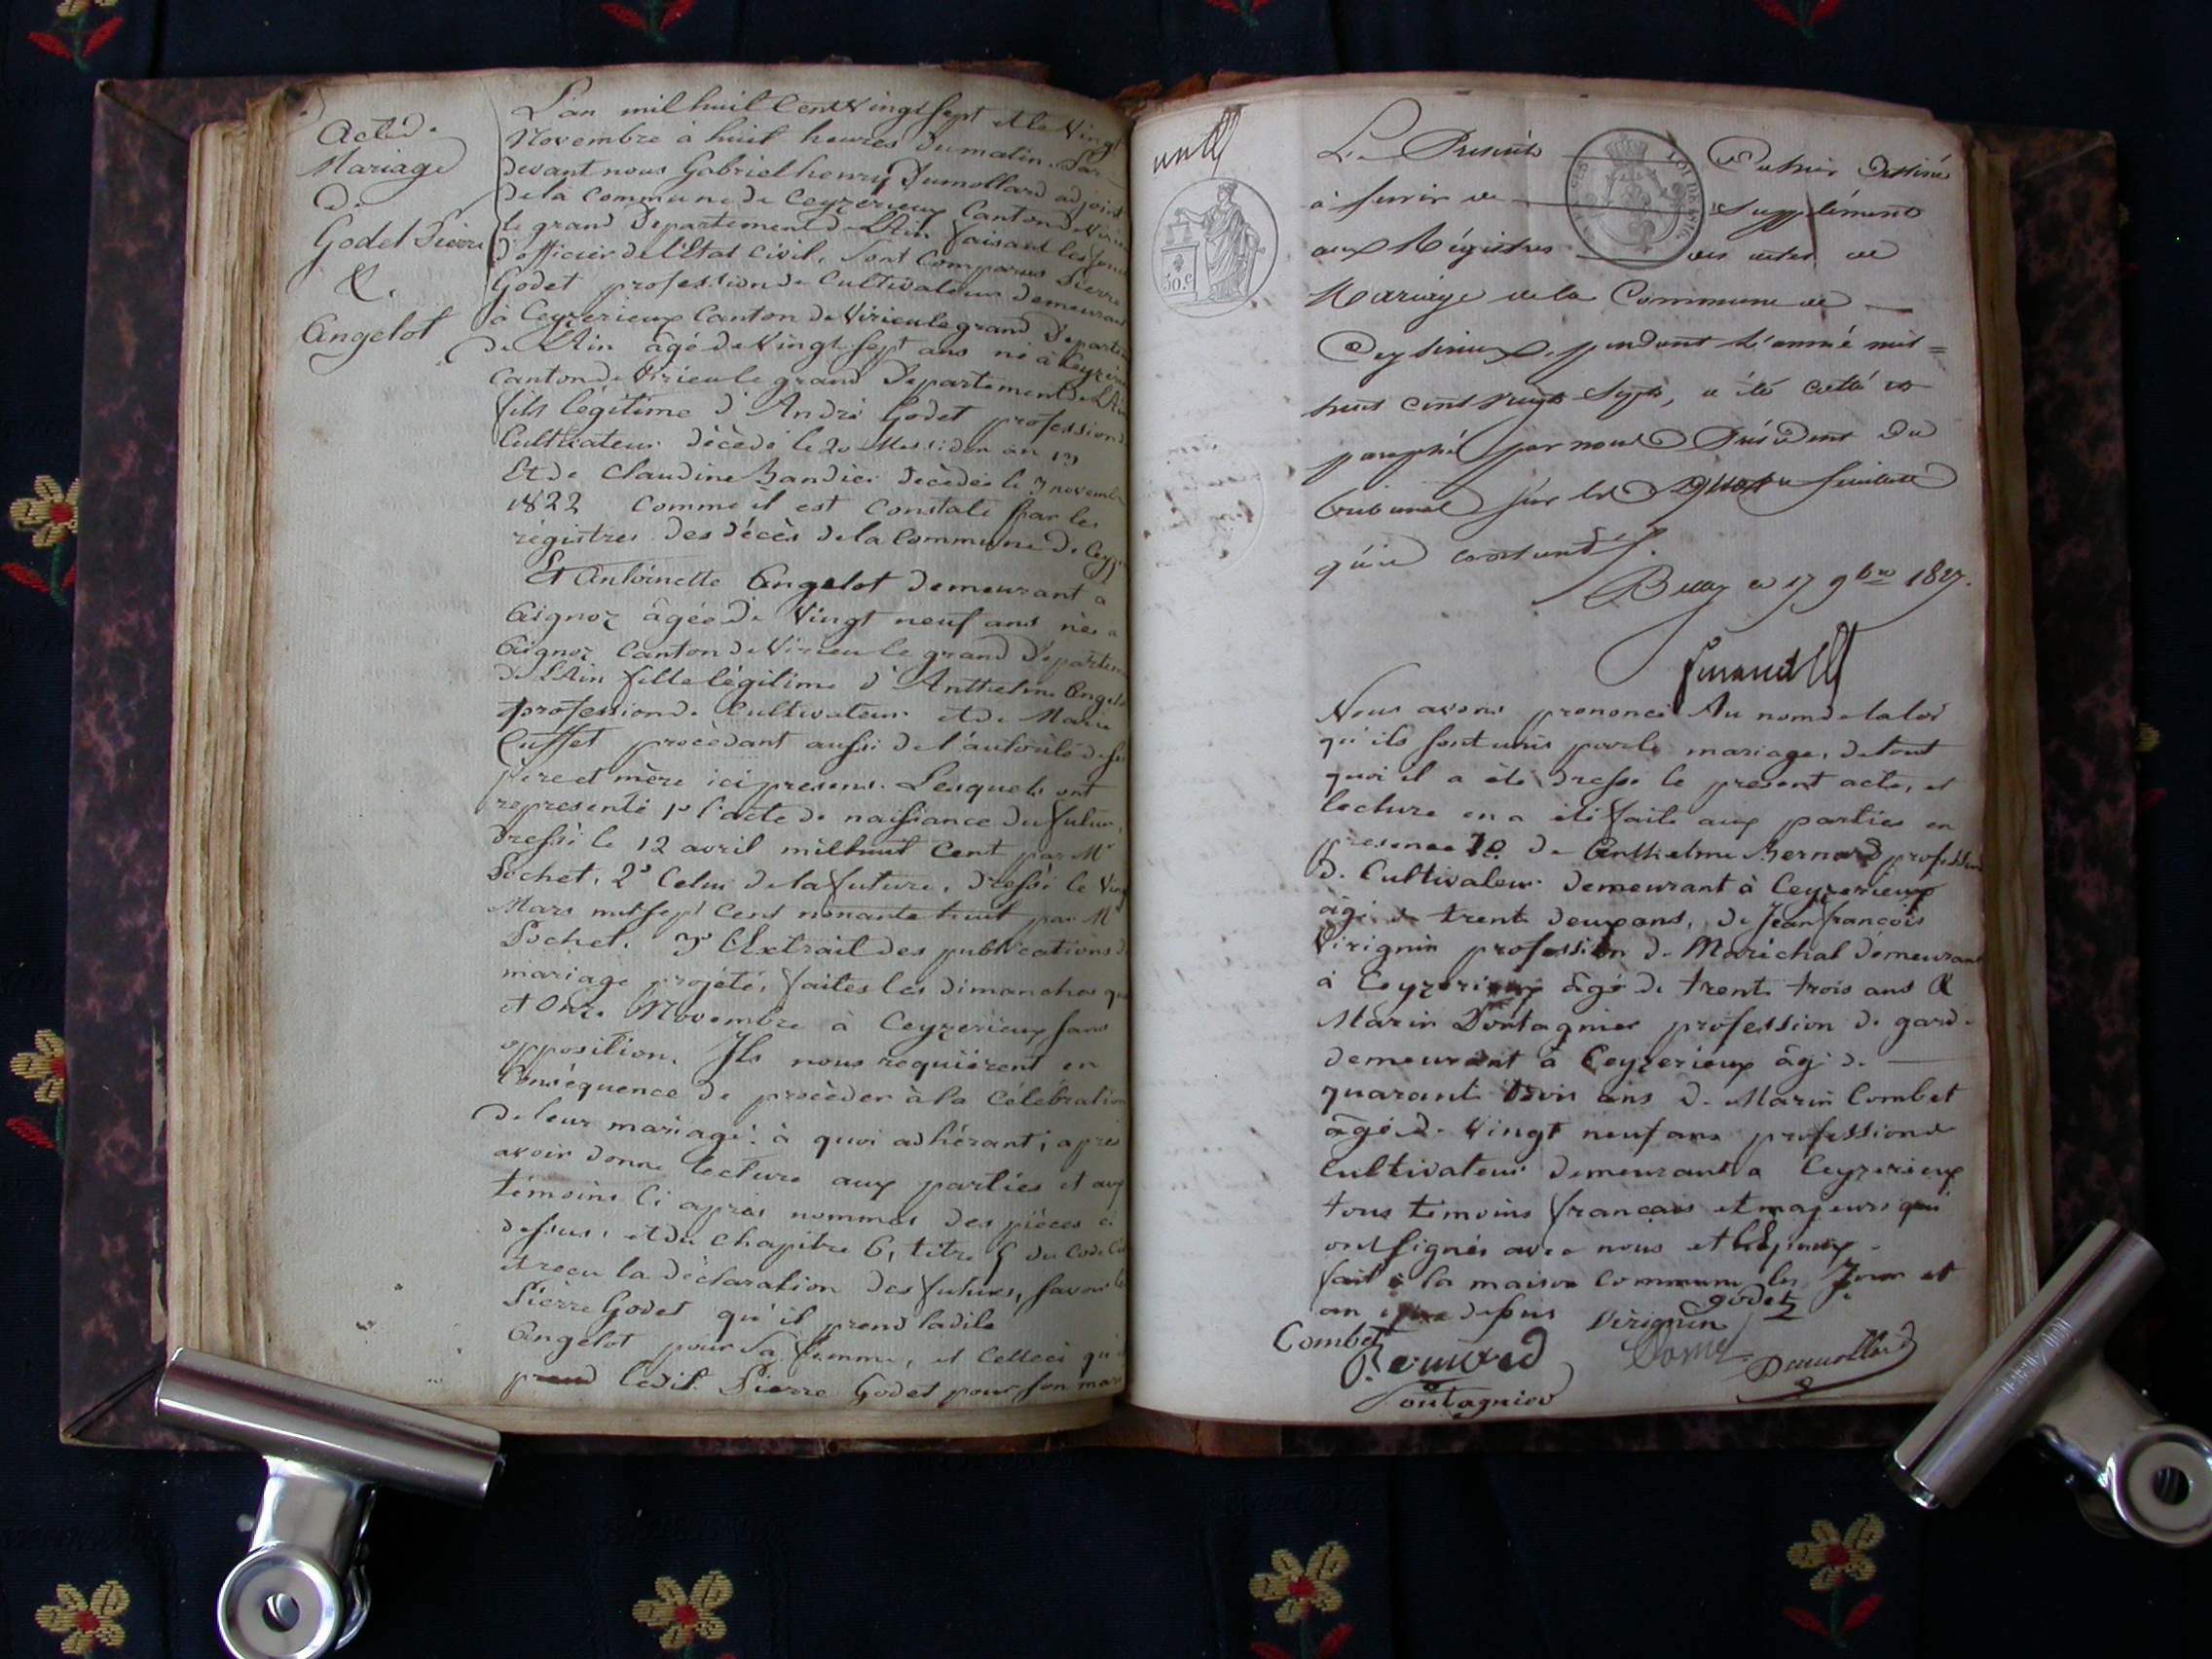 Acte de
Mariage
de
Godet Pierre
&
Angelot
L'an mil huit Cent Vingt Sept et le Vingt
Novembre à huit heures du matin. Par
devant nous Gabriel henry Dumollard adjoint
de la Commune de Ceyzerieux Canton de Virieu
le grand Departement de L'Ain faisant les fonc
d'officier de l'Etat Civil. Sont Comparus Pierre
Godet profession de Cultivateur demeurant
à Ceyzerieux Canton de Virieu le grand Departem
de L'Ain agé de Vingt Sept ans né à Ceyzerieu
Canton de Virieu le grand Departement de L'Ain
fils légitime d'André Godet profession d
Cultivateur décédé le 20 Messidor an 13
Et de Claudine Bandier décèdée le 3 novembre
1822 Comme il est Constaté par les
régistres des décès de la Commune de Ceyz
Et Antoinette Angelot demeurant a
Aignoz âgée de Vingt neuf ans née a
Aignoz Canton de Virieu le grand Departem
de L'Ain fille légitime d'Anthelme Angelo
profession de Cultivateur et de Marie
Cuffet procèdant aussi de l'autorité de ses
père et mère ici presens. Lesquels ont
représenté 1º l'acte de naissance du futur,
dressé le 12 avril mil huit Cent par Mr
Pochet. 2º Celui de la future, dressé le Ving
Mars mil sept Cent nonante huit par Mr
Pochet. 3º L'Extrait des publications d
mariage projété, faites les dimanches qu
et Onze Novembre à Ceyzerieux sans
opposition. Ils nous requièrent en
Conséquence de procèder à la Célébration
de leur mariage: à quoi adhérant; après
avoir donné lecture aux parties et aux
témoins Ci après nommés des pièces ci
dessus, et du chapitre 6, titre 5 du Code Civ
et reçu la déclaration des futurs, savoir le
Pierre Godet qu'il prend ladite
Angelot pour Sa femme, et Celleci qu'
prend ledit Pierre Godet pour son mari
50 C
Le Présent Cahier destiné
à servir de Supplément
aux Régistres des actes de
Mariage de la Commune de
Ceyserieux pendant l'année mil
huit cent vingt Sept, a été cotté et
paraphé par nous Président du
tribunal sur les quatre feuillets
qu'il contient.
Belley le 17 9bre 1827.
Nous avons prononcé Au nom de la loi
qu'ils sont unis par le mariage, de tout
quoi il a été dressé le present acte, et
lecture en a été faite aux parties en
presence 1º de Anthelme Bernard profession
de Cultivateur demeurant à Ceyzerieux
agé de trente deux ans, de Jean françois
Virignin profession de Maréchal demeurant
à Ceyzerieux âgé de trente trois ans &
Marin Pontagnier profession de garde
demeurant à Ceyzerieux âgé de
quarante trois ans de Marin Combet
âgé de Vingt neuf ans profession de
Cultivateur demeurant a Ceyzerieux
tous témoins français et majeurs qui
ont signés avec nous et l'Epoux.
fait à la maison Commune les Jour et
an que dessus Virignin godet
Combet Bernard Dumollard
Pontagnier